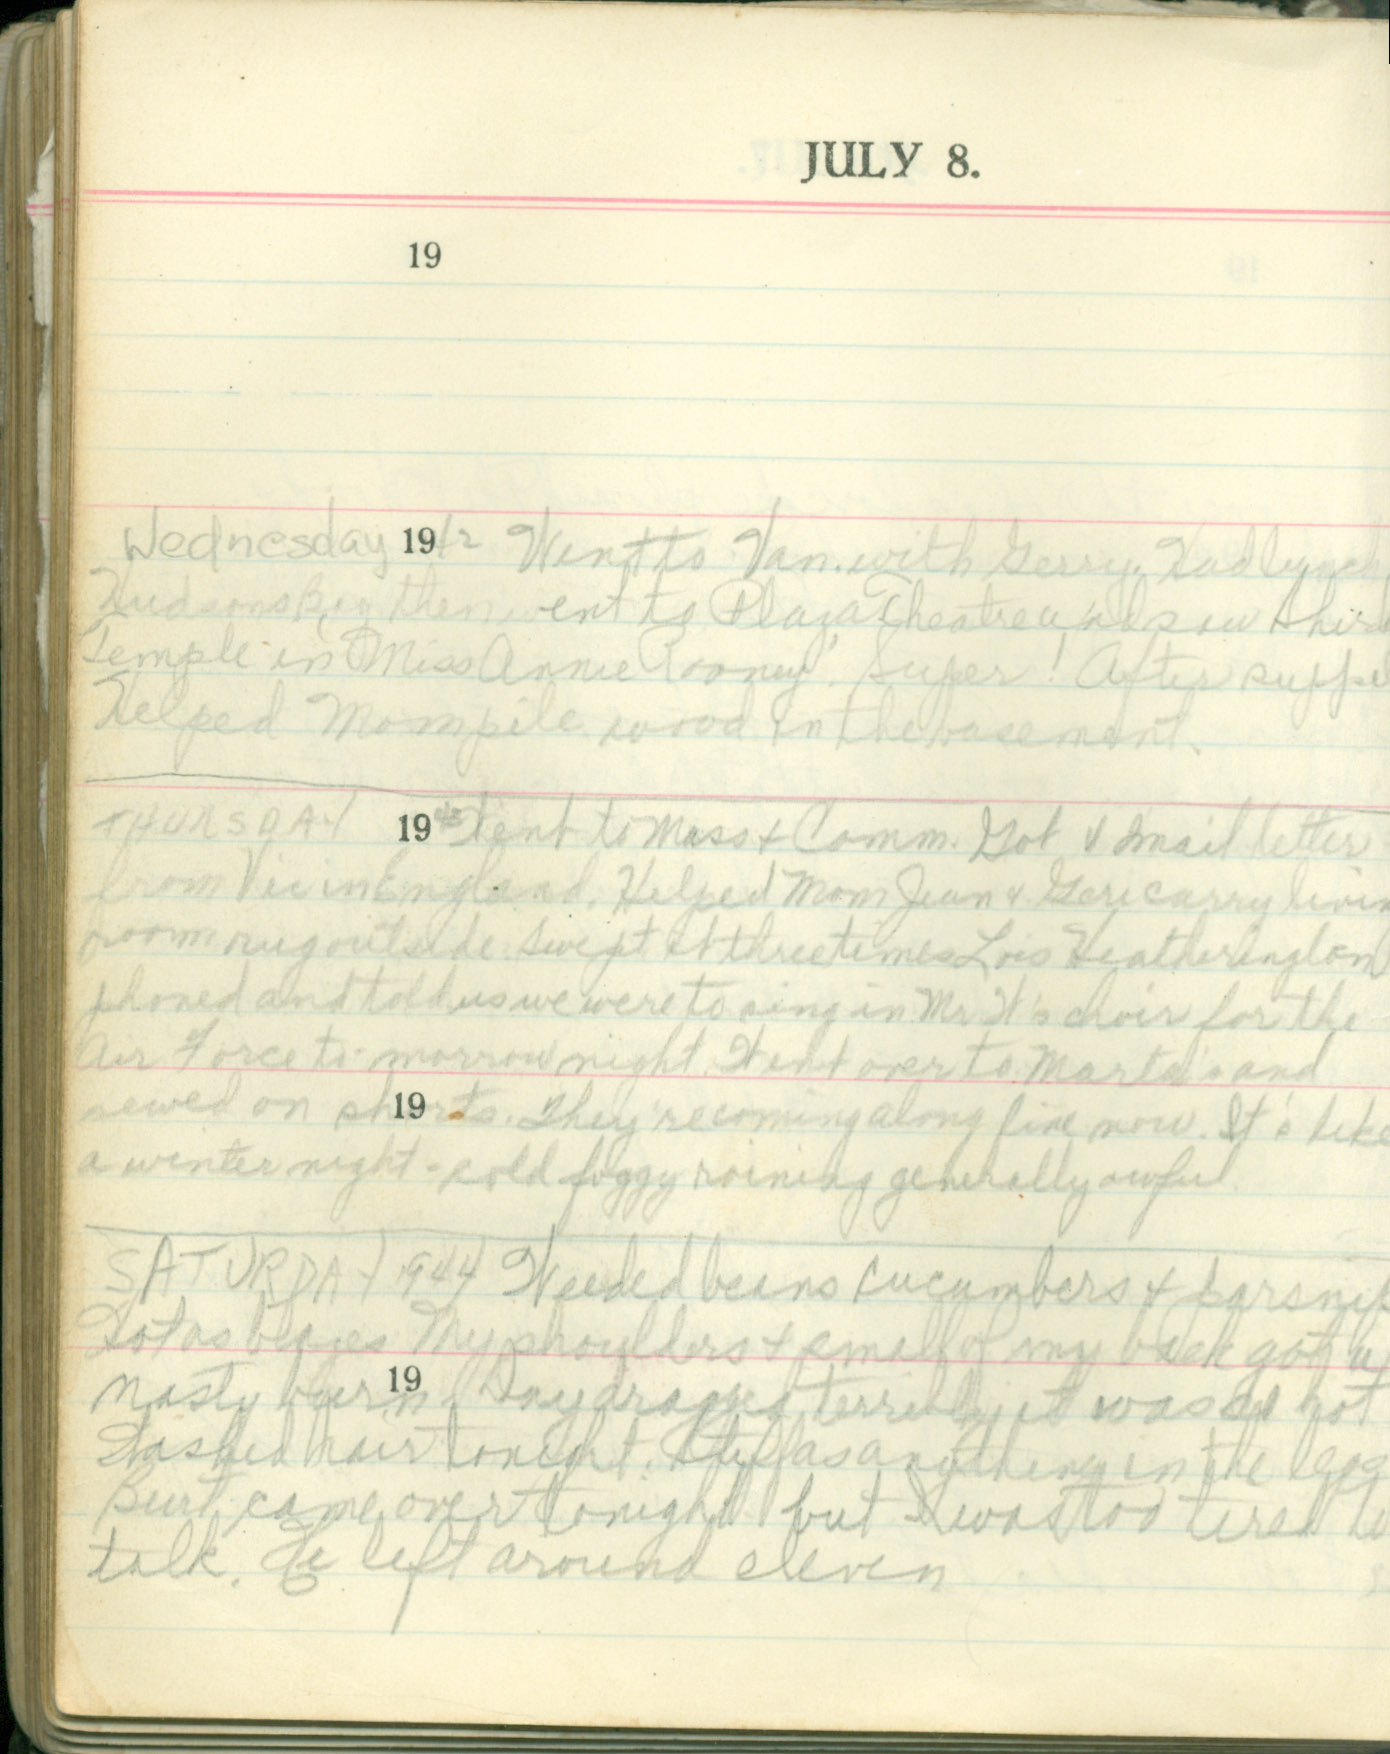 JULY 8.
19
Wednesday 1942 Went to Van. with Gerry. Had lunch
Hudsons Bay then went to Plaza Theatre and saw Shir
Temple in "Miss Annie Rooney". Super! After suppe
Helped Mom pile wood in the basement.
THURSDAY 1943 Went to Mass + Comm. Got V mail letter
from Vic in England. Helped Mom Jean + Geri carry livin
room rug outside. Swept it three times Lois Heatherington
phoned and told us we were to sing in Mr. W's choir for the
Air Force to-morrow night. Went over to Marta's and
sewed on shorts. They're coming along fine now. It's like
19
a winter night - cold foggy raining generally awful
SATURDAY 1944 Weeded beans cucumbers + parsnip
Hot as blazes My shoulders + small of my back got a
nasty burn. Day dragged terribly it was so hot
19
Washed hair tonight. as anything in the
Burt came over tonight but I was too tired to
talk. He left around eleven